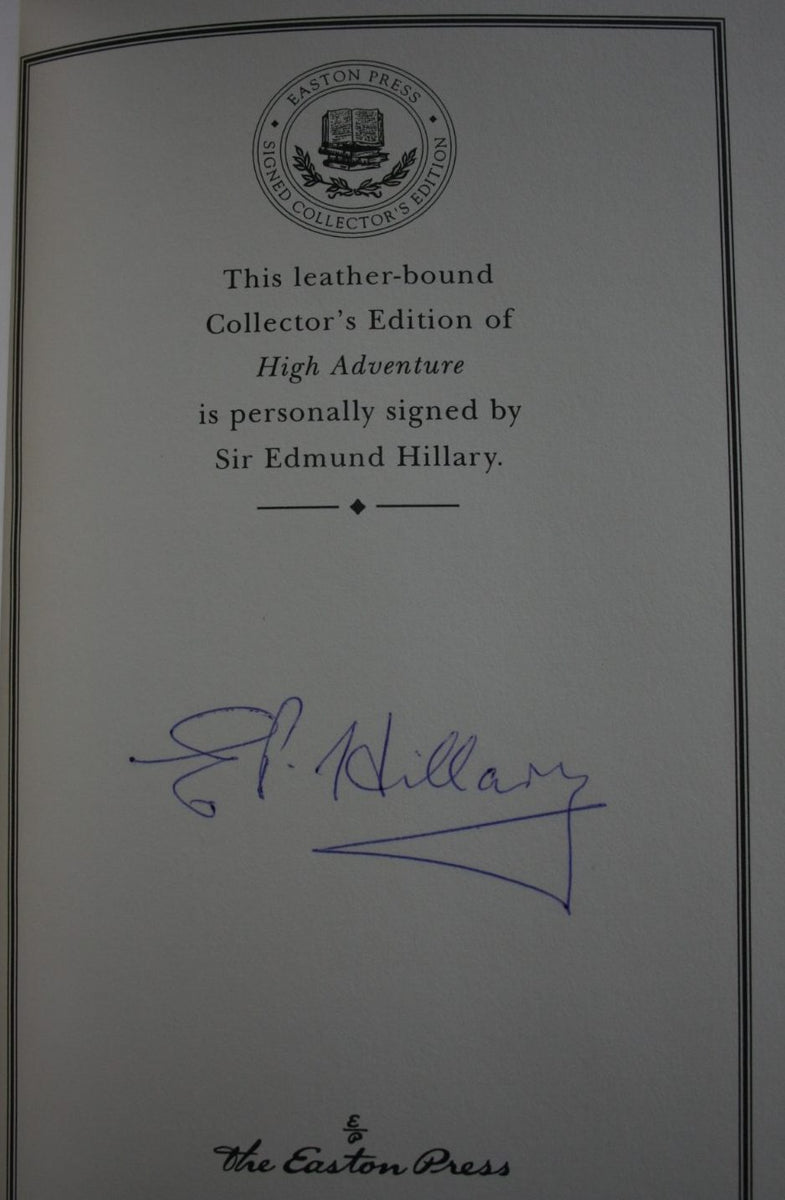 EASTON PRESS
SIGNED COLLECTOR'S EDITION
This leather-bound
Collector's Edition of
High Adventure
is personally signed by
Sir Edmund Hillary.
E P. Hillary
E
P
The Easton Press